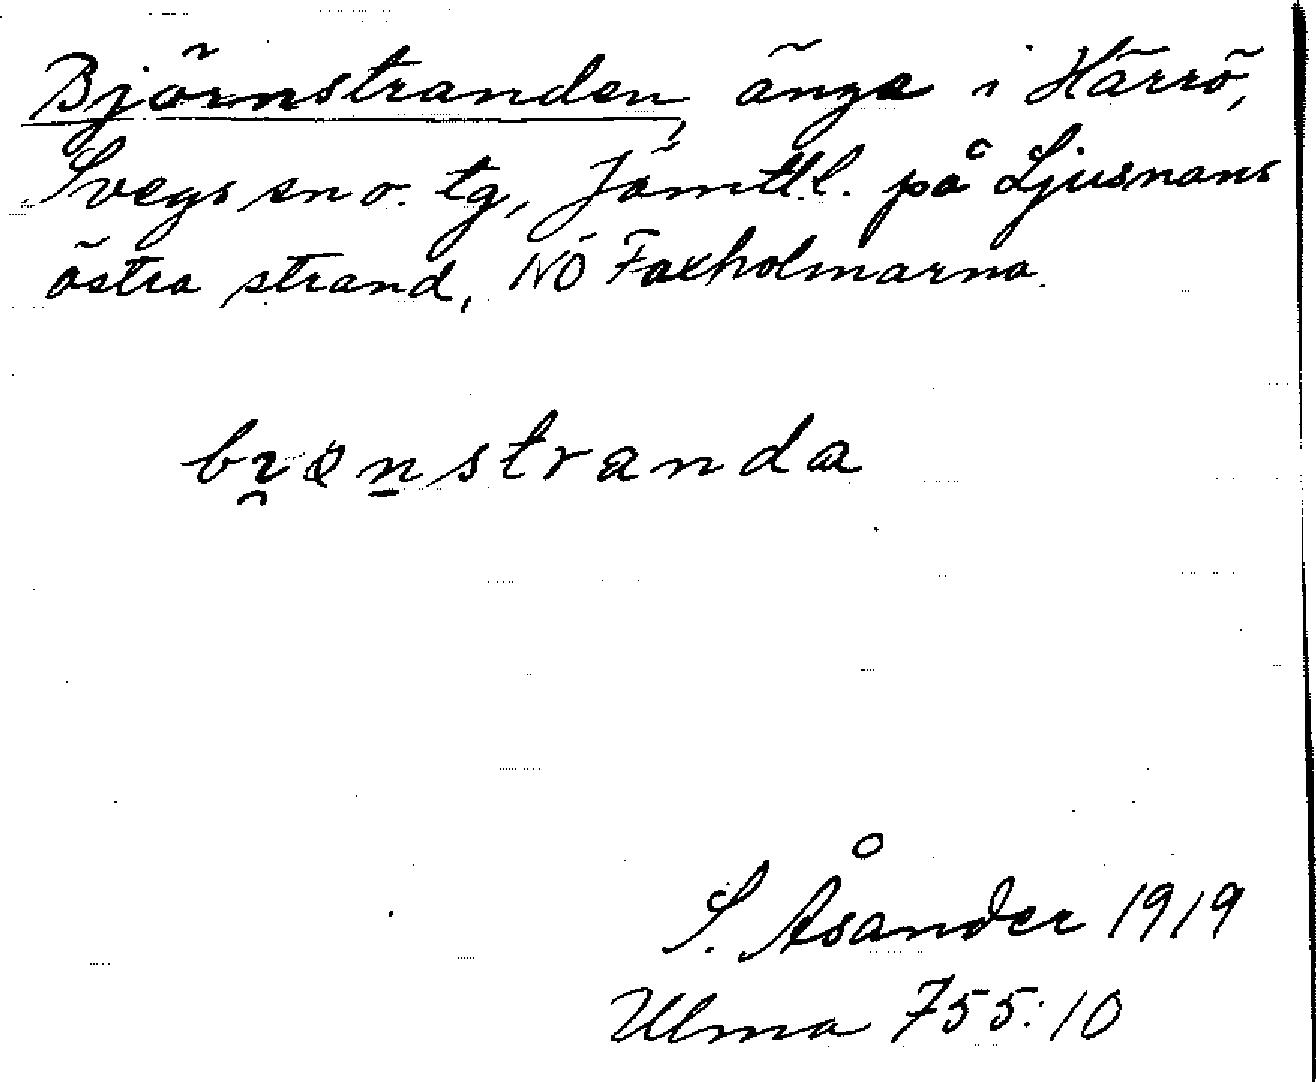 Björnstranden, änge i Härrö,
Svegs sn o. tg, Jämtl.l. på Ljusnans
östra strand, NÖ Faxholmarna.
bi̯ønstranda
S. Åsander 1919
Ulma 755:10